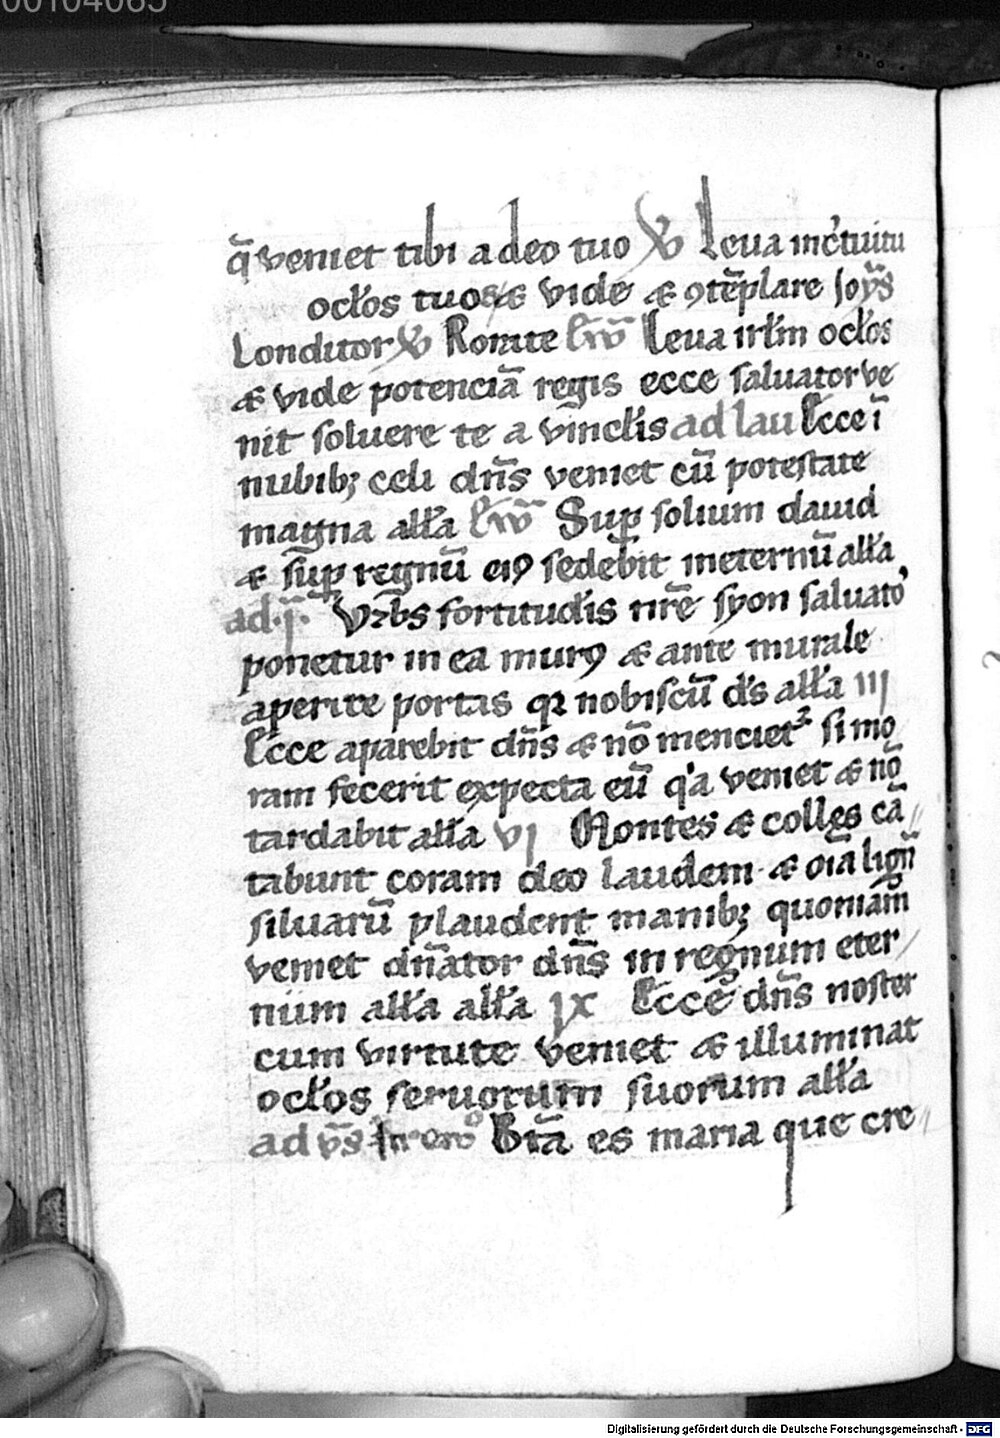 00104065
q̄ veniet tibi a deo tuo ℣ Leua in c̓tuitu
ocl̄os tuos & vide & ꝯtēplare Joȳs
Conditor ℣ Rorate Leua irl̄m ocl̄os
& vide potenciā regis ecce saluator ve
nit soluere te a vīnclis ad lau Ecce ī
nubibꝫ celi dn̄s veniet cū potestate
magna all̄a Suꝑ solium dauid
& suꝑ regnū eiꝰ sedebit ineternū all̄a
ad .j. Vrbs fortitudīs nr̄e syon saluato
ponetur in ea murꝰ & ante murale
aperite portas qꝛ nobiscū ds̄ all̄a III
Ecce aparebit dn̄s & nō mencietꝛ si mo
ram fecerit expecta eū q̓a veniet & nō
tardabit all̄a VI Montes & colles cā
tabunt coram deo laudem & oīa lign̄
siluarū plaudent manibꝫ quoniam
veniet dn̄ator dn̄s in regnum eter
num all̄a all̄a IX Ecce dn̄s noster
cum virtute veniet & illuminat
ocl̄os seruorum suorum all̄a
ad vs̄ Bt̄a es maria que cre
Digitalisierung gefördert durch die Deutsche Forschungsgemeinschaft - DFG